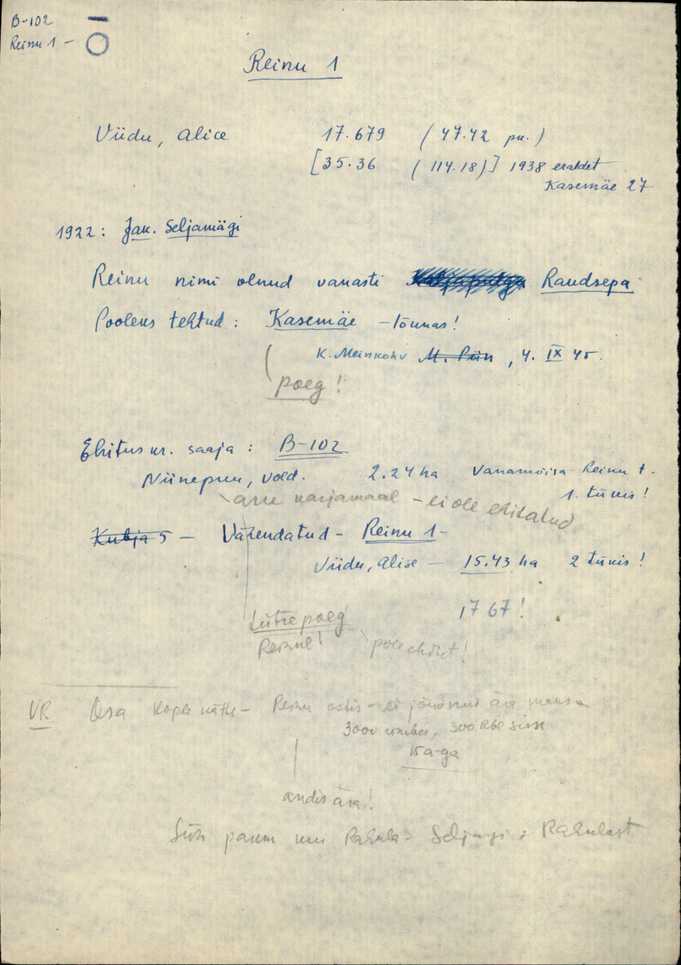 B-102 —
Reinu 1 — O
Reinu 1
Viidu, Alice 17.679 (47.42 pu.)
[35.36 (114.18)] 1938 eraldet
Kasemäe 27
1922: Jak. Seljamägi
Reinu nimi olnud vanasti Raudsepa
Pooleks tehtud: Kasemäe – tõunas!
K. Meinkohv M. Pän, 4. IX 45.
poeg!
Ehitus kr. saaja: B-102
Niinepuu, Vold. 2.24 ha Vanamõisa Reinu t.
1. tükis!
karjamaal – ei ole ehitatud
Kubja 5 – Vähendatud – Reinu 1 –
Viidu, Alise – 15.43 ha 2 tükis!
1767!
Lütre poeg
Reinul!
VR Osa Kopli – Reinu ostis – ei jõudnud ära maksa
300 Rbl sisse
15a-ga
andis ära!
Siis parun Rahula –